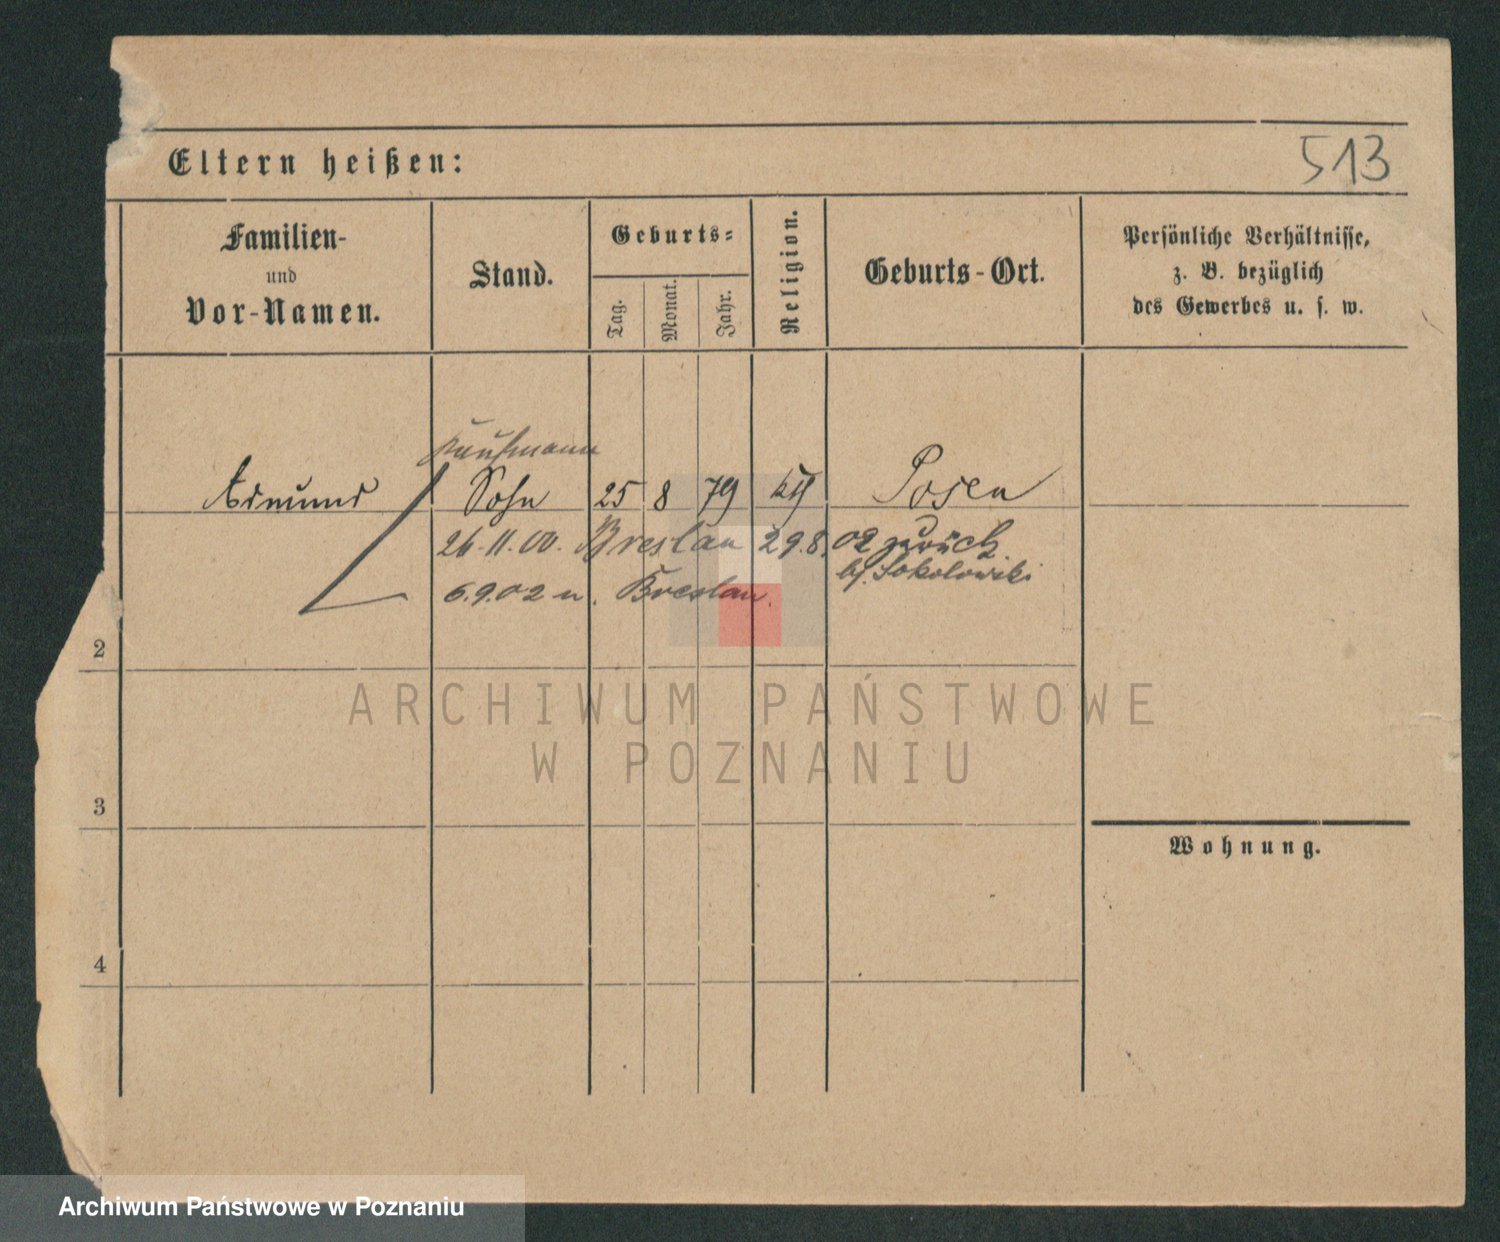 Eltern heißen:
513
Familien-
und
Vor-Namen.
Stand.
Geburts-
Tag.
Monat.
Jahr.
Religion.
Geburts-Ort.
Persönliche Verhältnisse,
z. B. bezüglich
des Gewerbes u. s. w.
Kaufmann
Edmund Sohn 25 8 79 Posen
26.11.00. Breslau 29.8.02 zurück
b/. Sokolowski
6.9.02 n. Breslau.
2
3
4
Wohnung.
ARCHIWUM PAŃSTWOWE
W POZNANIU
Archiwum Państwowe w Poznaniu